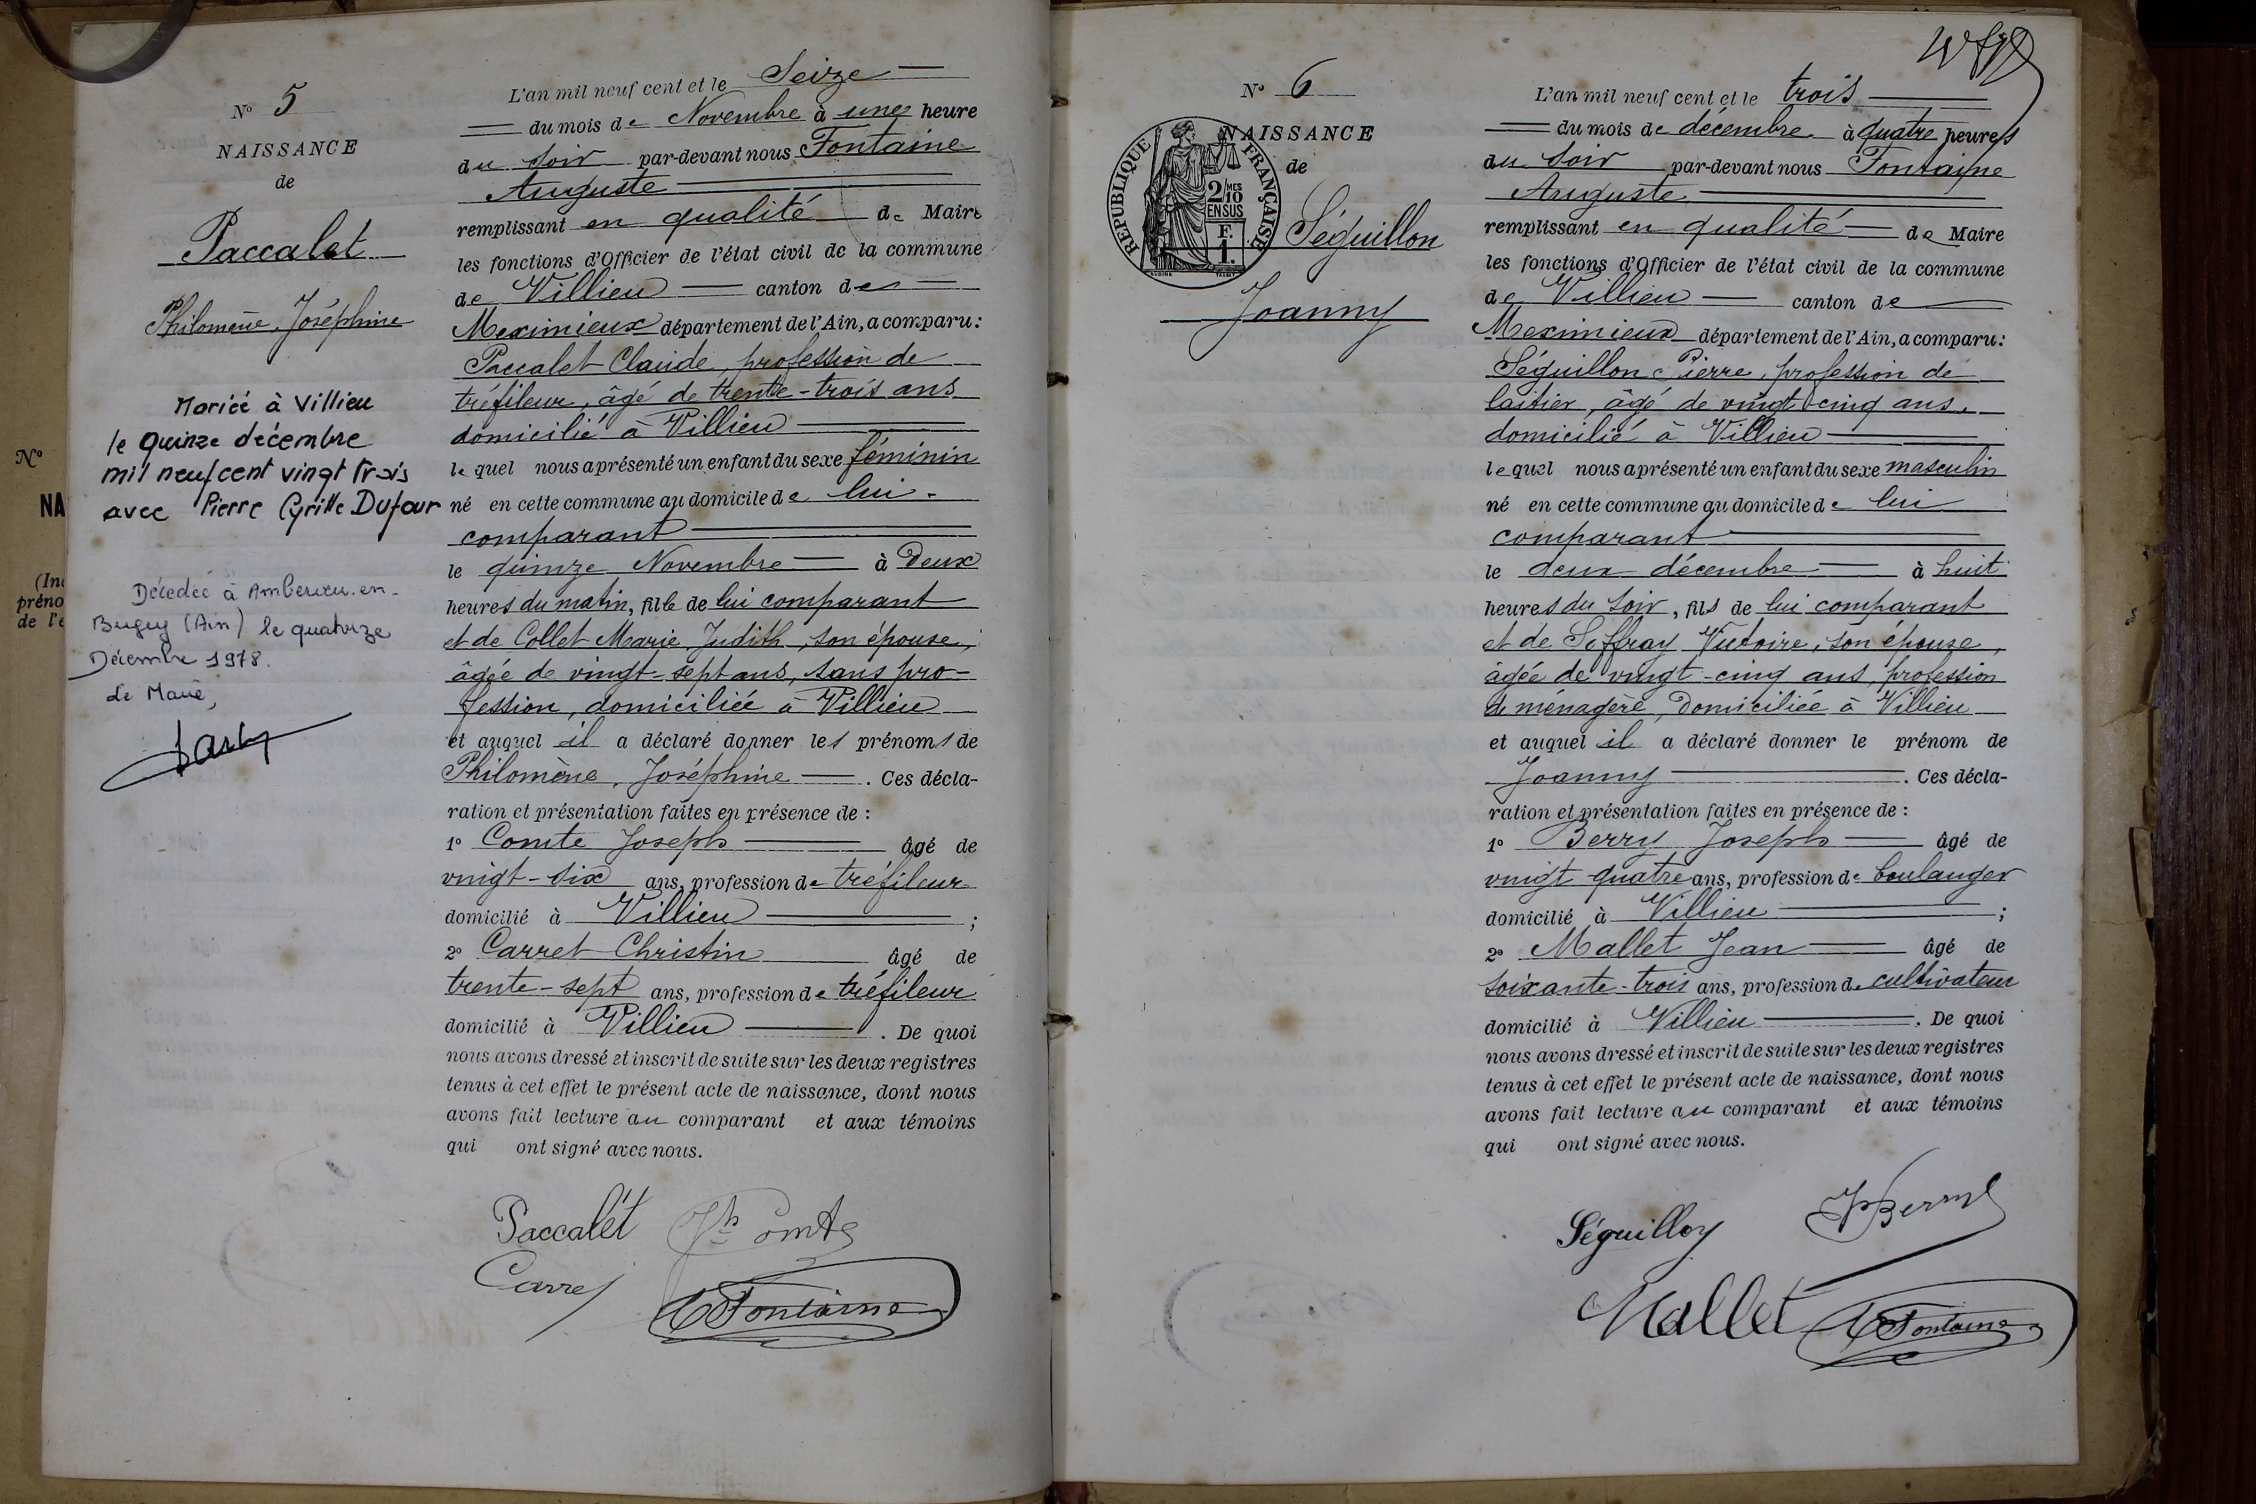 N° 5
NAISSANCE
de
Paccalet
Philomène, Joséphine
Mariée à Villieu
le quinze décembre
mil neuf cent vingt trois
avec Pierre Cyrille Dufour
Décédée à Ambérieu-en-
Bugey (Ain) le quatorze
Décembre 1978.
Le Maire,
N°
NA
(Ind
préno
de l'e
L'an mil neuf cent et le Seize
du mois de Novembre à une heure
du soir par-devant nous Fontaine
Auguste
remplissant en qualité de Maire
les fonctions d'Officier de l'état civil de la commune
de Villieu canton de
Meximieux département de l'Ain, a comparu:
Paccalet Claude, profession de
tréfileur, âgé de trente-trois ans
domicilié à Villieu
lequel nous a présenté un enfant du sexe féminin
né en cette commune au domicile de lui
comparant
le quinze Novembre à Deux
heures du matin, fille de lui comparant
et de Collet Marie Judith, son épouse,
âgée de vingt-sept ans, sans pro-
fession, domiciliée à Villieu
et auquel il a déclaré donner les prénoms de
Philomène, Joséphine. Ces décla-
ration et présentation faites en présence de :
1° Comte Joseph âgé de
vingt-six ans, profession de tréfileur
domicilié à Villieu ;
2° Carret Christin âgé de
trente-sept ans, profession de tréfileur
domicilié à Villieu. De quoi
nous avons dressé et inscrit de suite sur les deux registres
tenus à cet effet le présent acte de naissance, dont nous
avons fait lecture au comparant et aux témoins
qui ont signé avec nous.
Paccalet Jh Comte
Carret
Fontaine
N° 6
NAISSANCE
de
RÉPUBLIQUE FRANÇAISE
2/10 MES
EN SUS
F.
1.
Séguillon
Joanny
L'an mil neuf cent et le trois
du mois de décembre à quatre heures
du soir par-devant nous Fontaine
Auguste
remplissant en qualité de Maire
les fonctions d'Officier de l'état civil de la commune
de Villieu canton de
Meximieux département de l'Ain, a comparu:
Séguillon Pierre, profession de
laitier, âgé de vingt cinq ans,
domicilié à Villieu
lequel nous a présenté un enfant du sexe masculin
né en cette commune au domicile de lui
comparant
le deux décembre à huit
heures du soir, fils de lui comparant
et de Soffray Victoire, son épouse,
âgée de vingt-cinq ans, profession
de ménagère, Domiciliée à Villieu
et auquel il a déclaré donner le prénom de
Joanny. Ces décla-
ration et présentation faites en présence de :
1° Berry Joseph âgé de
vingt quatre ans, profession de boulanger
domicilié à Villieu ;
2° Mallet Jean âgé de
soixante-trois ans, profession de cultivateur
domicilié à Villieu. De quoi
nous avons dressé et inscrit de suite sur les deux registres
tenus à cet effet le présent acte de naissance, dont nous
avons fait lecture au comparant et aux témoins
qui ont signé avec nous.
Séguillon Berry
Mallet Fontaine